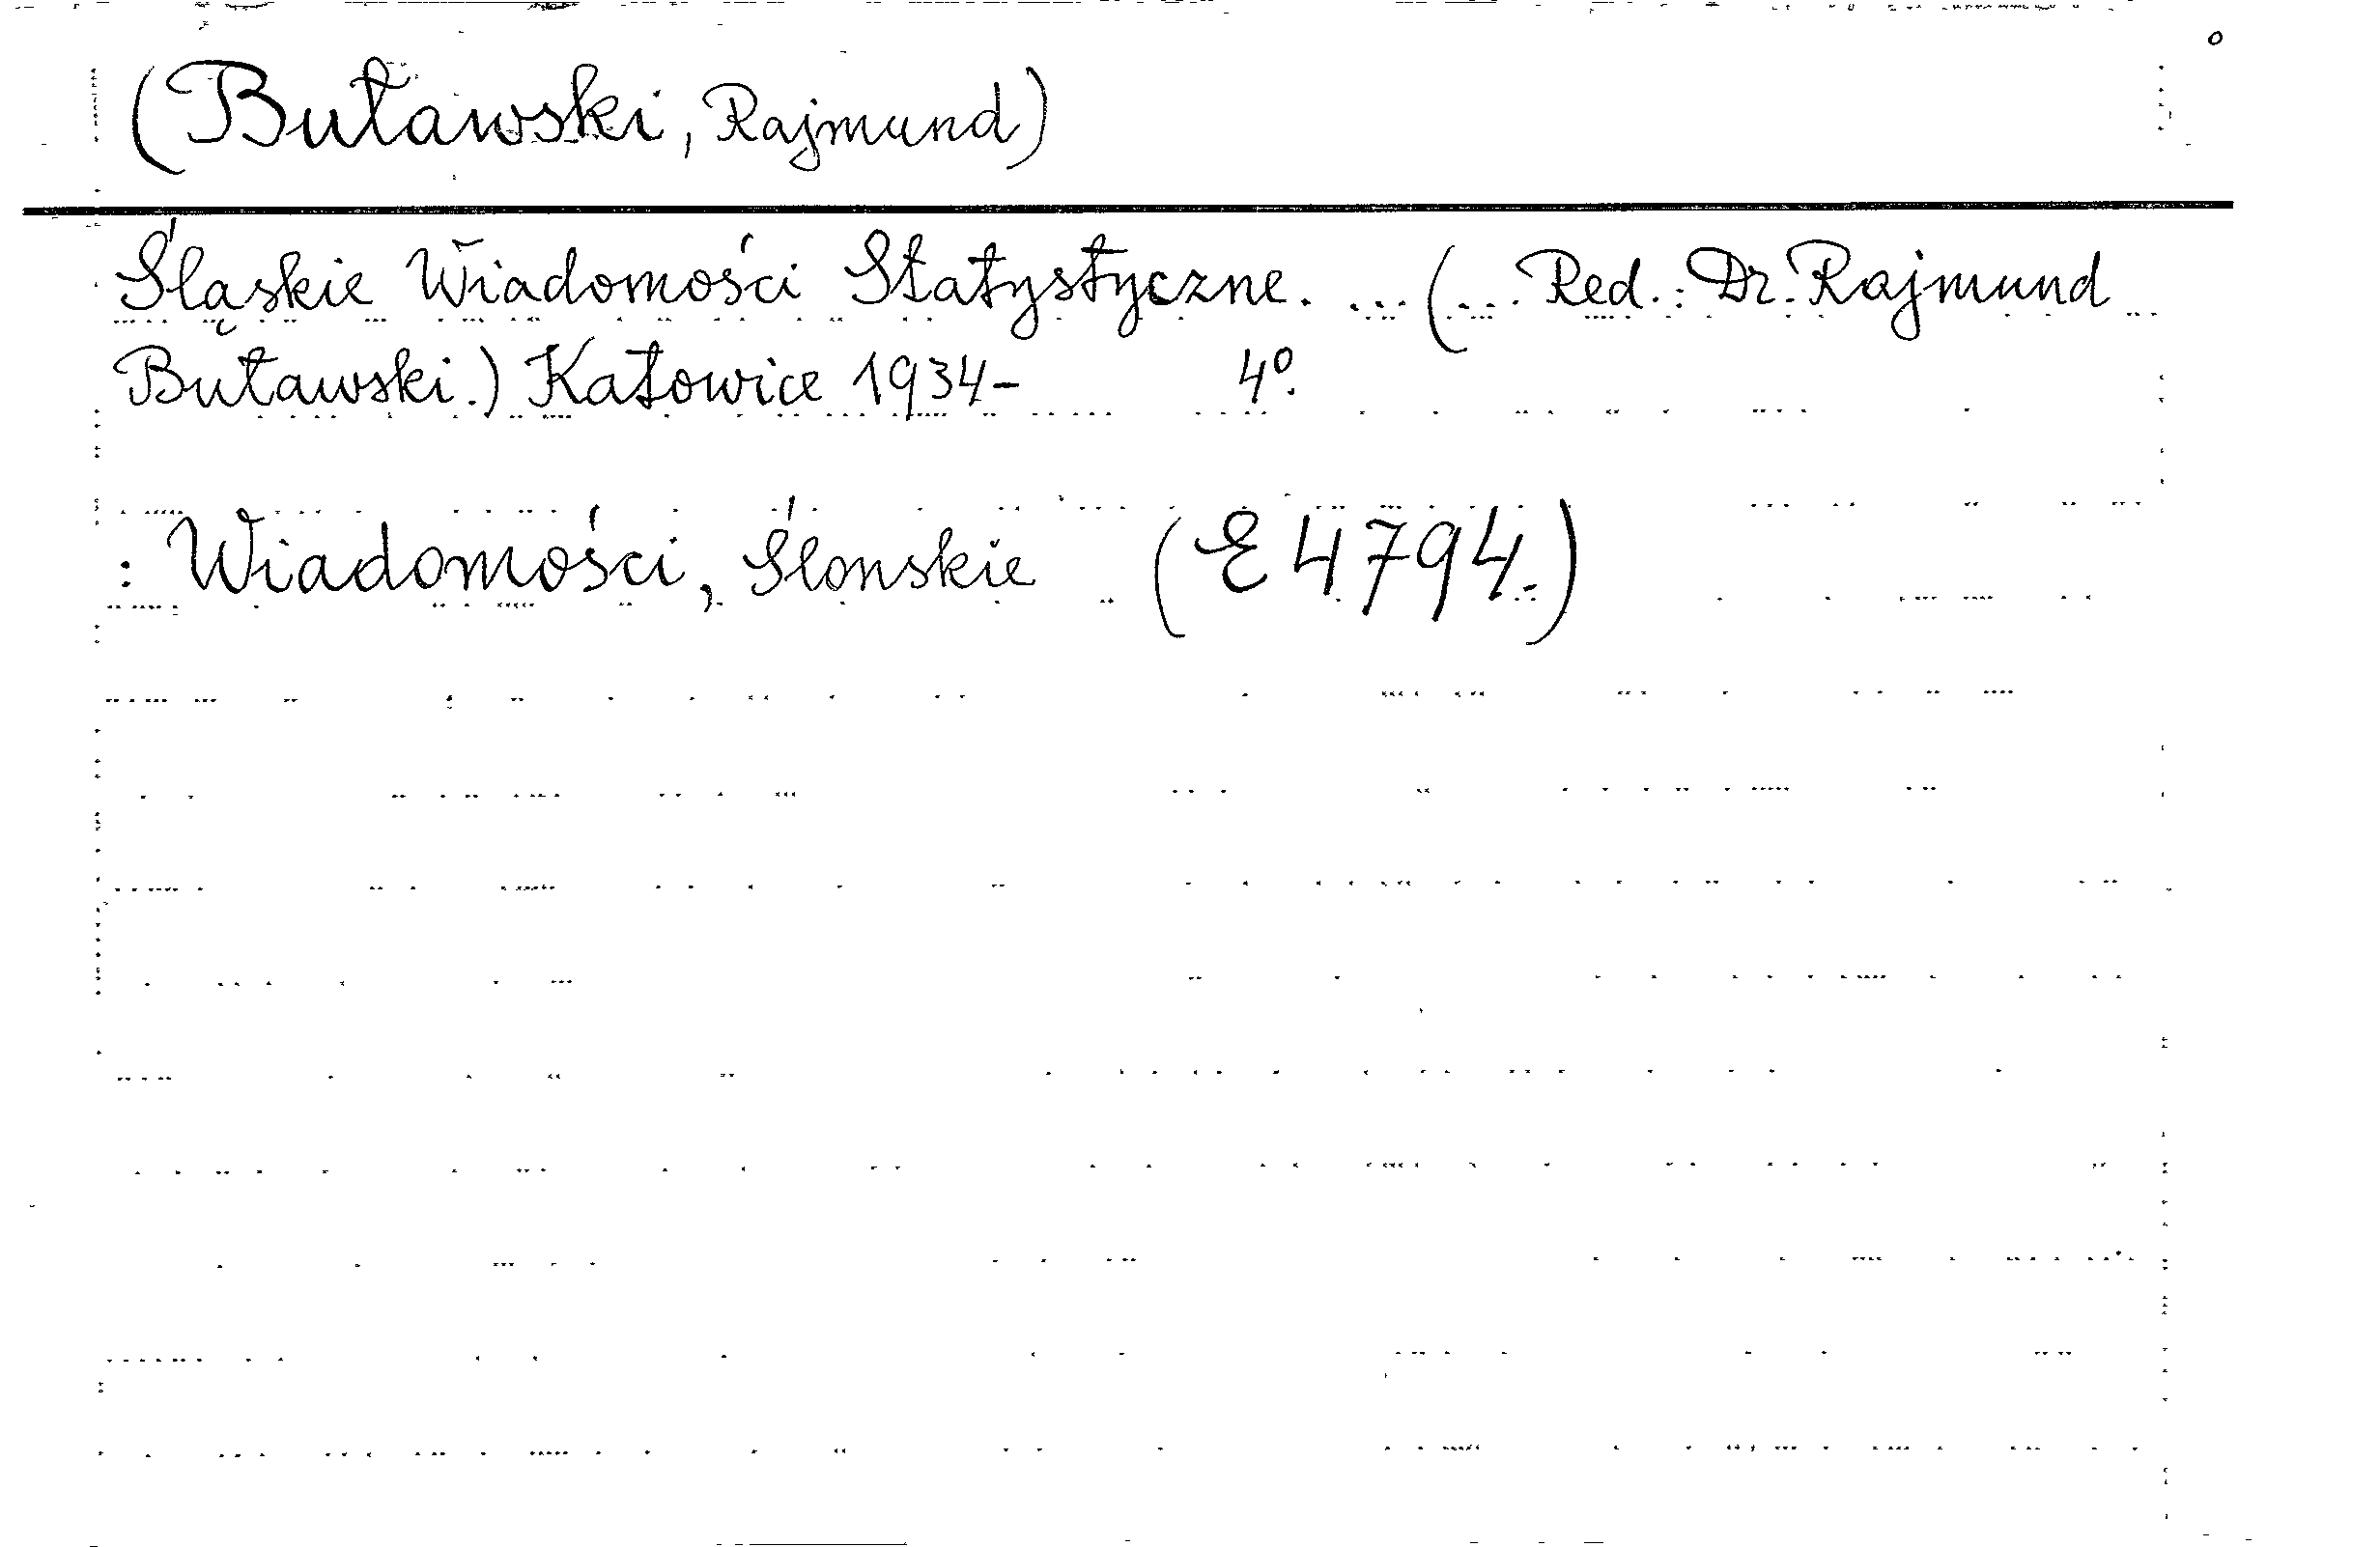 (Buławski, Rajmund)
Śląskie Wiadomości Statystyczne. ... (... Red.: Dr. Rajmund
Buławski.) Katowice 1934- 4º.
: Wiadomości, Ślonskie (E 4794.)